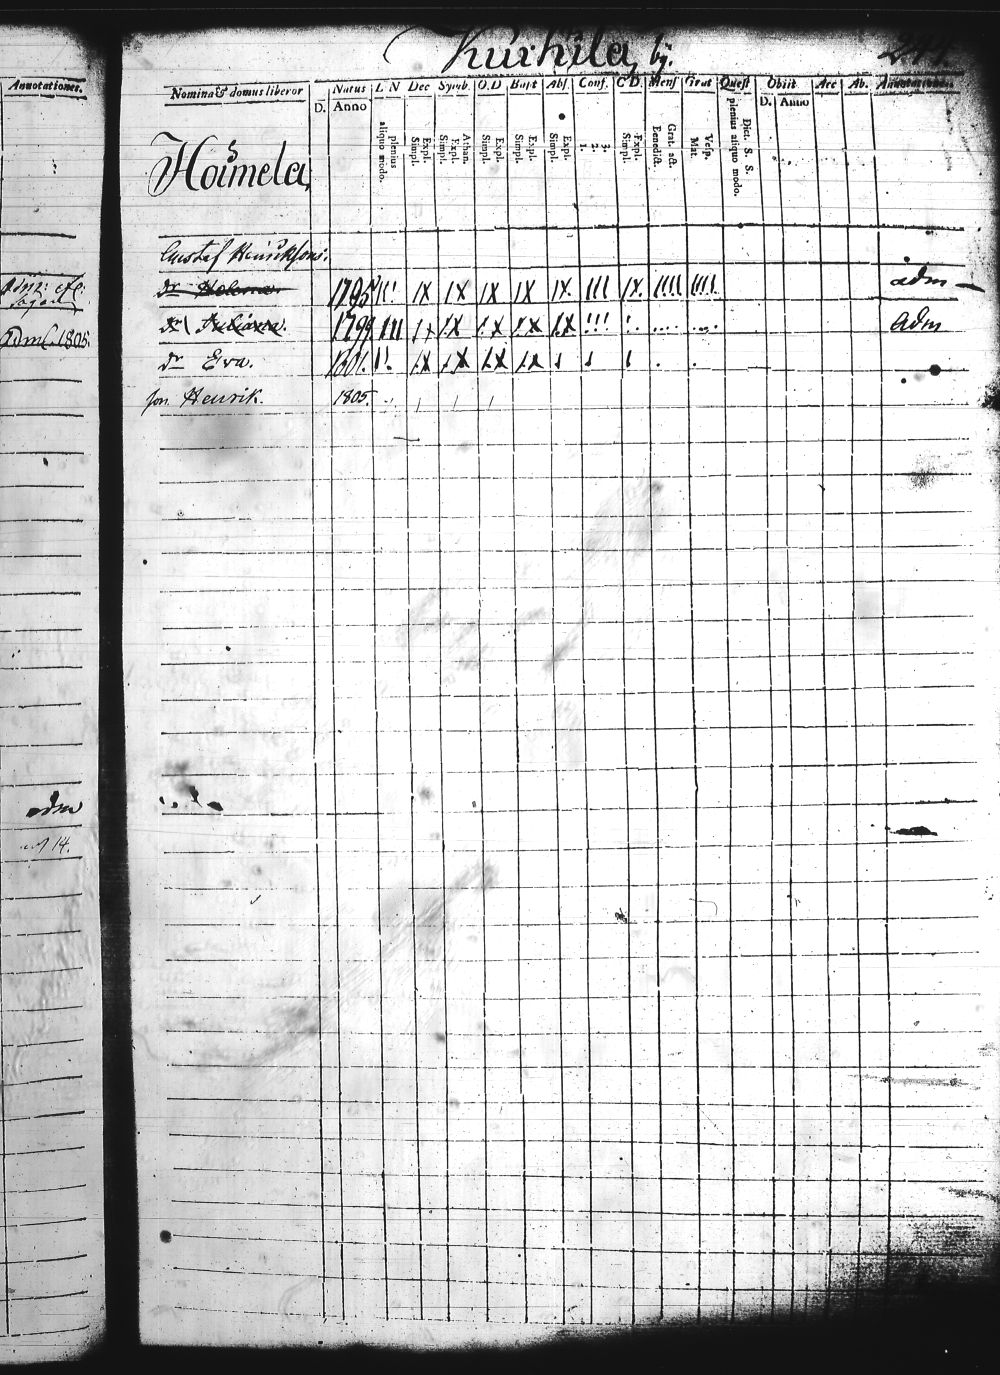 Kurhila by.
Annotationes.
Nomina & domus liberor
Natus
L N
Dec
Symb.
O.D
Bapt
Abs.
Conf.
C D.
Mens
Grat
Quest
Obiit
Acc
Ab.
Annotationes.
D.
Anno
D.
Anno
plenius
aliquo modo.
Expl.
Simpl.
Athan.
Expl.
Simpl.
Expl.
Simpl.
Expl.
Simpl.
Expl.
Simpl.
3.
2.
1.
Expl.
Simpl.
Grat. act.
Benedict.
Vesp.
Mat.
Dict. S. S.
plenius aliquo modo.
Hoimela,
Gustaf Henrikssons.
dr Helena. 1795 adm
dr Juliana. 1799 adm
dr Eva. 1801.
son Henrik. 1805.
adm. 1805.
adm
14.